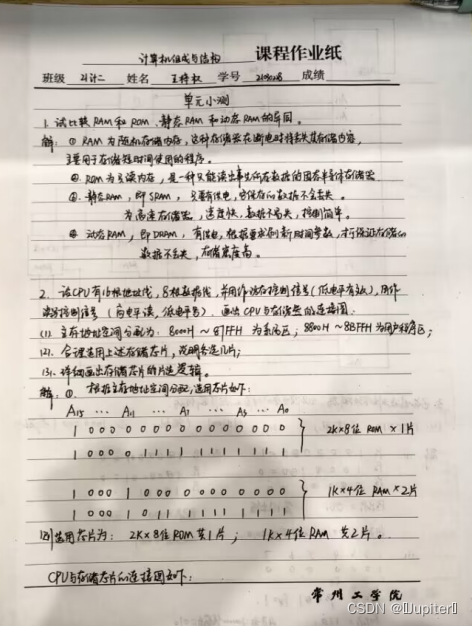 计算机组成与结构 课程作业纸
班级 计二 姓名 学号 成绩
单元小测
1. 试比较RAM和ROM、静态RAM和动态RAM的异同。
解: ① RAM为随机存储内存,这种存储器在断电时将丢失其存储内容,
主要用于存储短时间使用的程序。
②. ROM为只读内存,是一种只能读出事先所存数据的固态半导体存储器.
③. 静态RAM,即SRAM,只要有供电,它保存的数据不会丢失。
为高速存储器,速度快,数据不丢失,控制简单。
④ 动态RAM,即DRAM,有供电,根据要求刷新时间参数,才保证存储的
数据不丢失,存储密度高。
2. 设CPU有16根地址线,8根数据线,并用作访存控制信号(低电平有效),用作
读写控制信号(高电平读,低电平写)。画出CPU与存储器的连接图.
(1). 主存地址空间分配为: 8000H ~ 87FFH 为系统区; 8800H ~ 8BFFH为用户程序区;
(2). 合理选用上述存储芯片,说明各选几片;
(3). 详细画出存储芯片的片选逻辑。
解: ①. 根据主存地址空间分配,选用芯片如下:
A15 ··· A11 ··· A7 ··· A3 ··· A0
1 0 0 0 0 0 0 0 0 0 0 0 0 0 0 0
2K×8位 ROM ×1片
1 0 0 0 0 1 1 1 1 1 1 1 1 1 1 1
1 0 0 0 1 0 0 0 0 0 0 0 0 0 0 0
1K×4位 RAM ×2片
1 0 0 0 1 0 1 1 1 1 1 1 1 1 1 1
选用芯片为: 2K×8位ROM 共1片; 1K×4位RAM 共2片。
CPU与存储芯片的连接图如下:
常州工学院
CSDN @JupiterJ